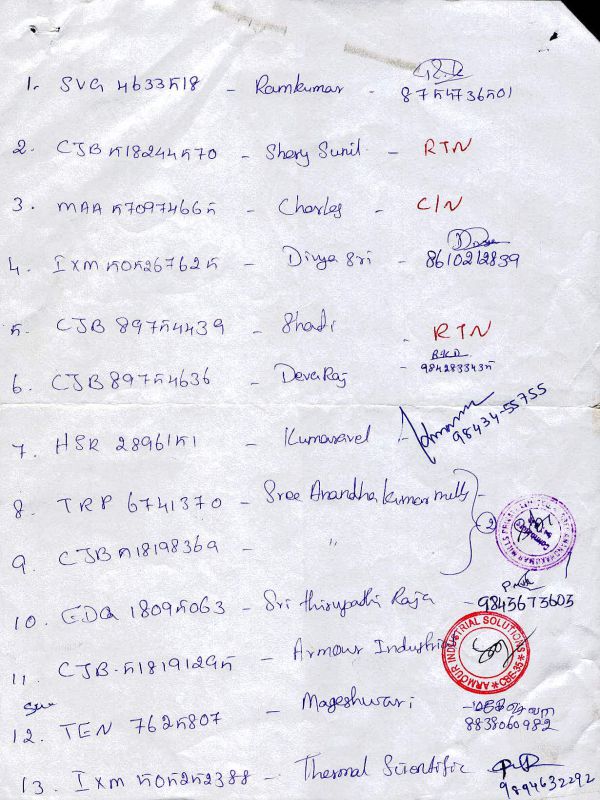 1. SVG 4633518 - Ramkumar - 8754736501
2. CJB 518244570 - Shery Sunil - RTN
3. MAA 570974665 - Charles - C/N
4. IXM 505267625 - Divya Sri - 8610212839
5. CJB 89754439 - Shadi - RTN
6. CJB 89754636 - Deva Raj - 9842833435
7. HSR 2896151 - Kumaravel - 98434-55755
8. TRP 6741370 - Sree Anandhakumar mills - 2
9. CJB 518198369 - "
10. EDQ 18095063 - Sri thirupathi Raja - 9845673603
ARMOUR INDUSTRIAL SOLUTIONS * CBE-35 *
11. CJB - 518191295 - Armour Industries
12. TEN 7625807 - Mageshwari - 8838060982
13. IXM 505252388 - Thermal Scientific 9894632292